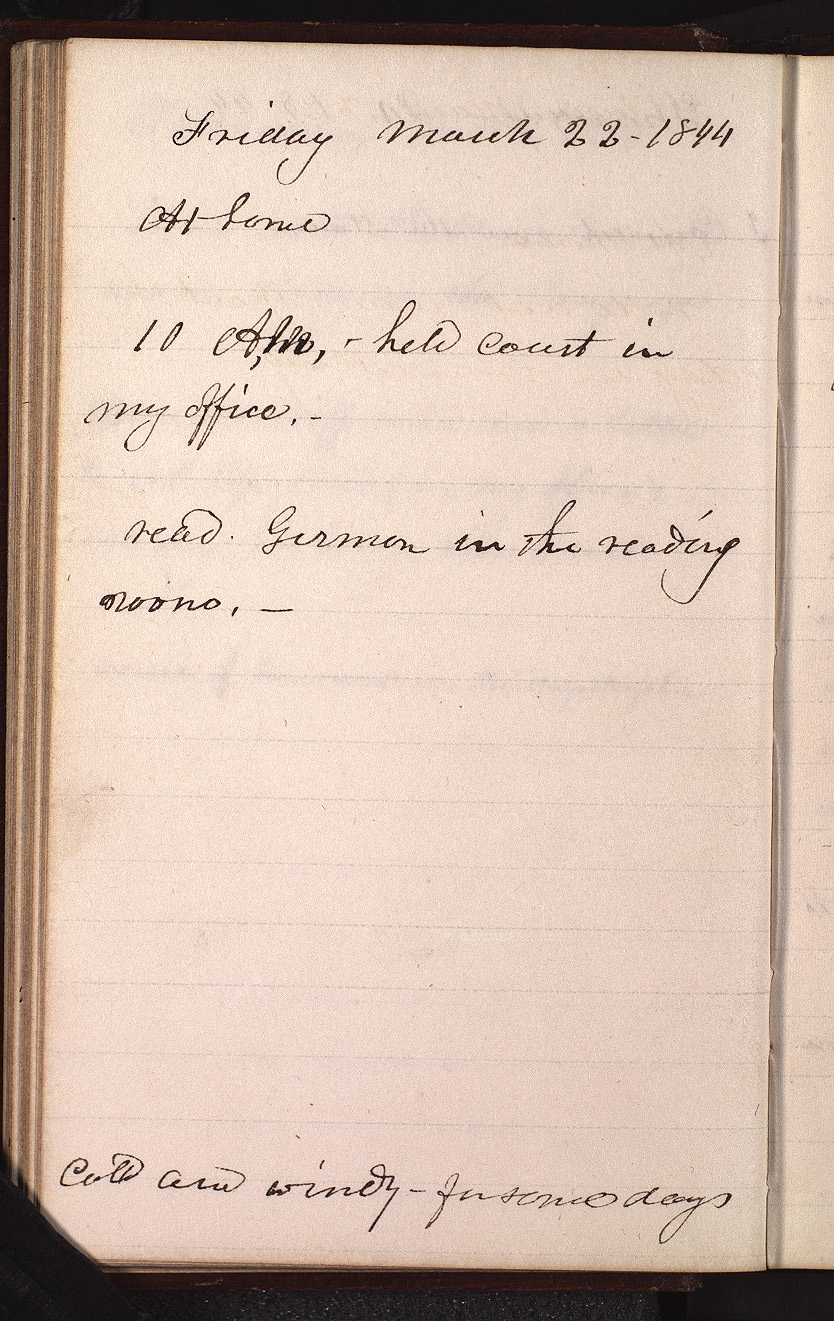 Friday March 22-1844
At home
10 A,M, - held court in
my office. -
read. German in the reading
room. —
Cold and windy - for some days